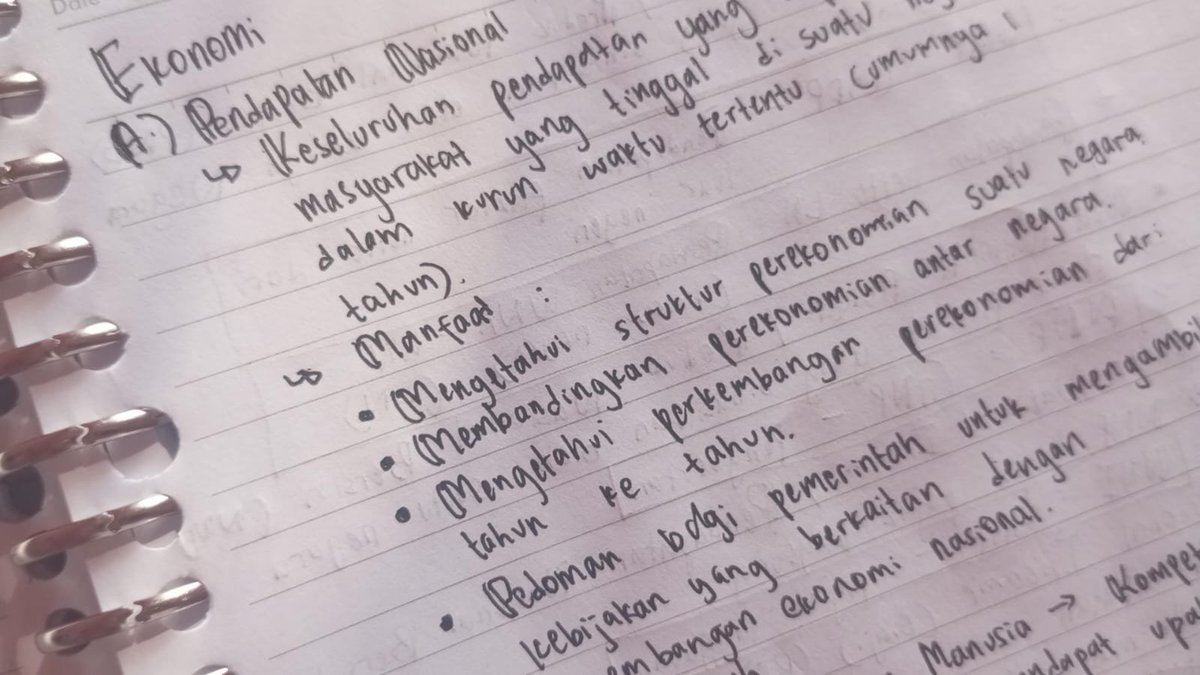 Date
Ekonomi
A.) Pendapatan Nasional
↳ Keseluruhan pendapatan yang
masyarakat yang tinggal di suatu
dalam kurun waktu tertentu (umumnya 1
tahun).
↳ Manfaat :
• Mengetahui struktur perekonomian suatu negara
• Membandingkan perekonomian antar negara.
• Mengetahui perkembangan perekonomian dari
tahun ke tahun.
• Pedoman bagi pemerintah untuk mengambil
kebijakan yang berkaitan dengan
embangan ekonomi nasional.
Manusia → Kompe
ndapat upa